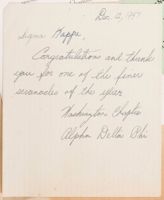 Dec. 12, 1957
Sigma Kappa,
Congratulations and thank
you for one of the finer
serenades of the year
Washington Chapter
Alpha Delta Phi